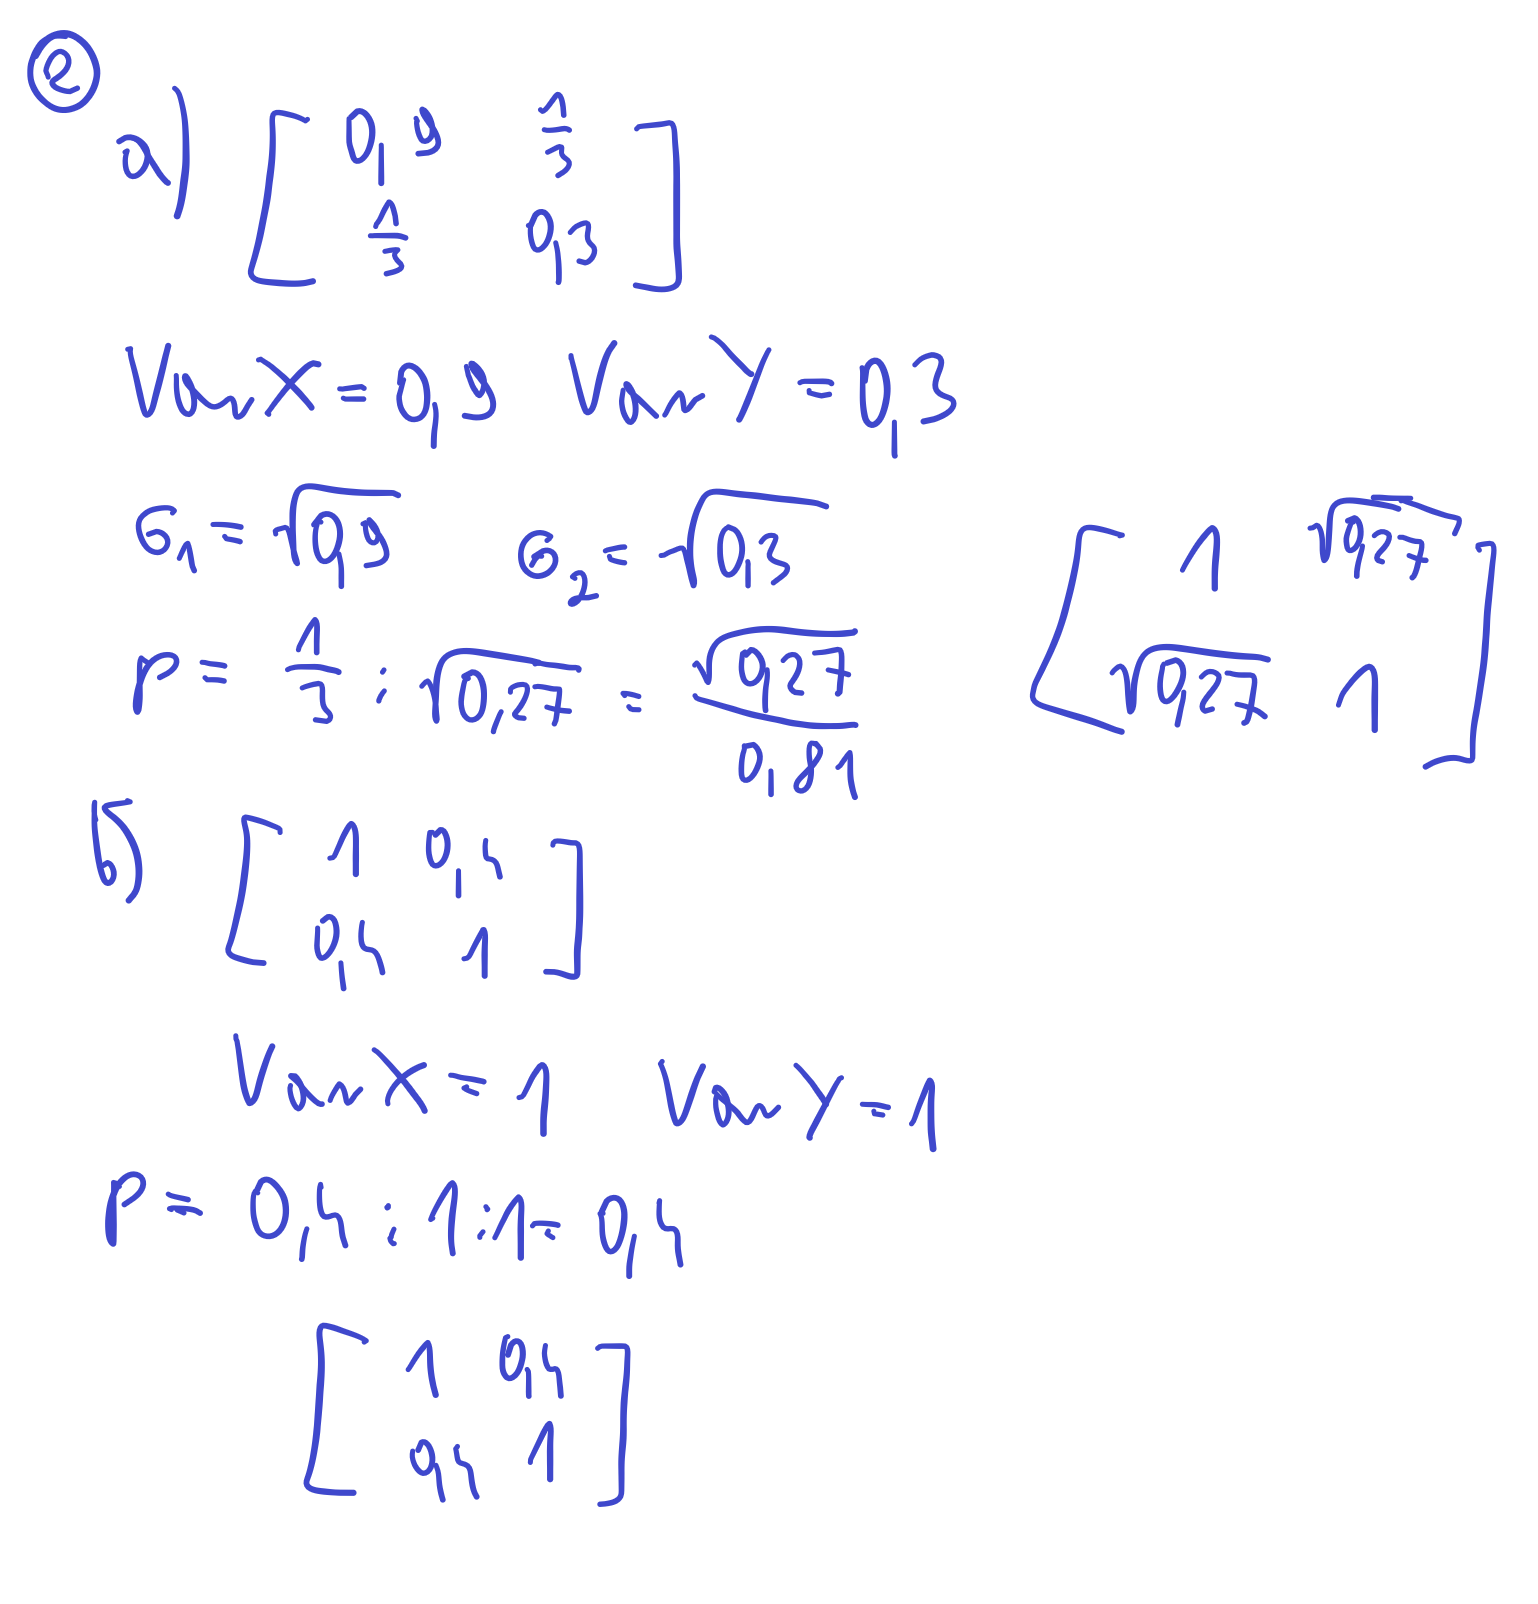 2
a) [ 0,9 1/3
1/3 0,3 ]
Var X = 0,9 Var Y = 0,3
σ₁ = √0,9 σ₂ = √0,3
ρ = 1/3 : √0,27 = √0,27/0,81
[ 1 √0,27
√0,27 1 ]
б) [ 1 0,4
0,4 1 ]
Var X = 1 Var Y = 1
ρ = 0,4 : 1 : 1 = 0,4
[ 1 0,4
0,4 1 ]